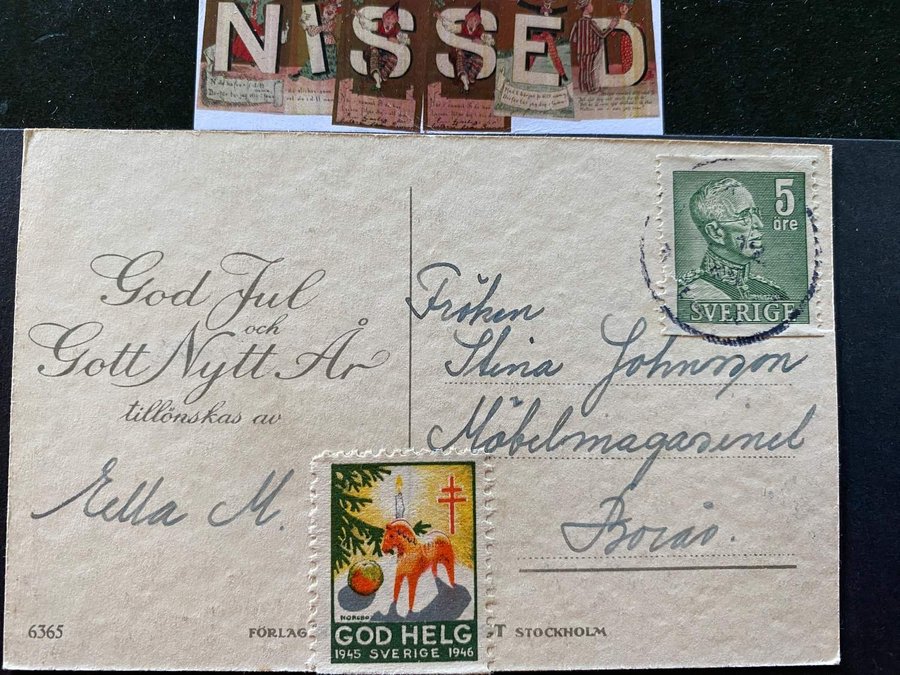 NISSED
God Jul
och
Gott Nytt År
tillönskas av
Eella M.
5
öre
SVERIGE
Fröken
Stina Johnsson
Möbelmagasinet
Borås.
NORDBO
GOD HELG
1945 SVERIGE 1946
6365
FÖRLAG
T STOCKHOLM